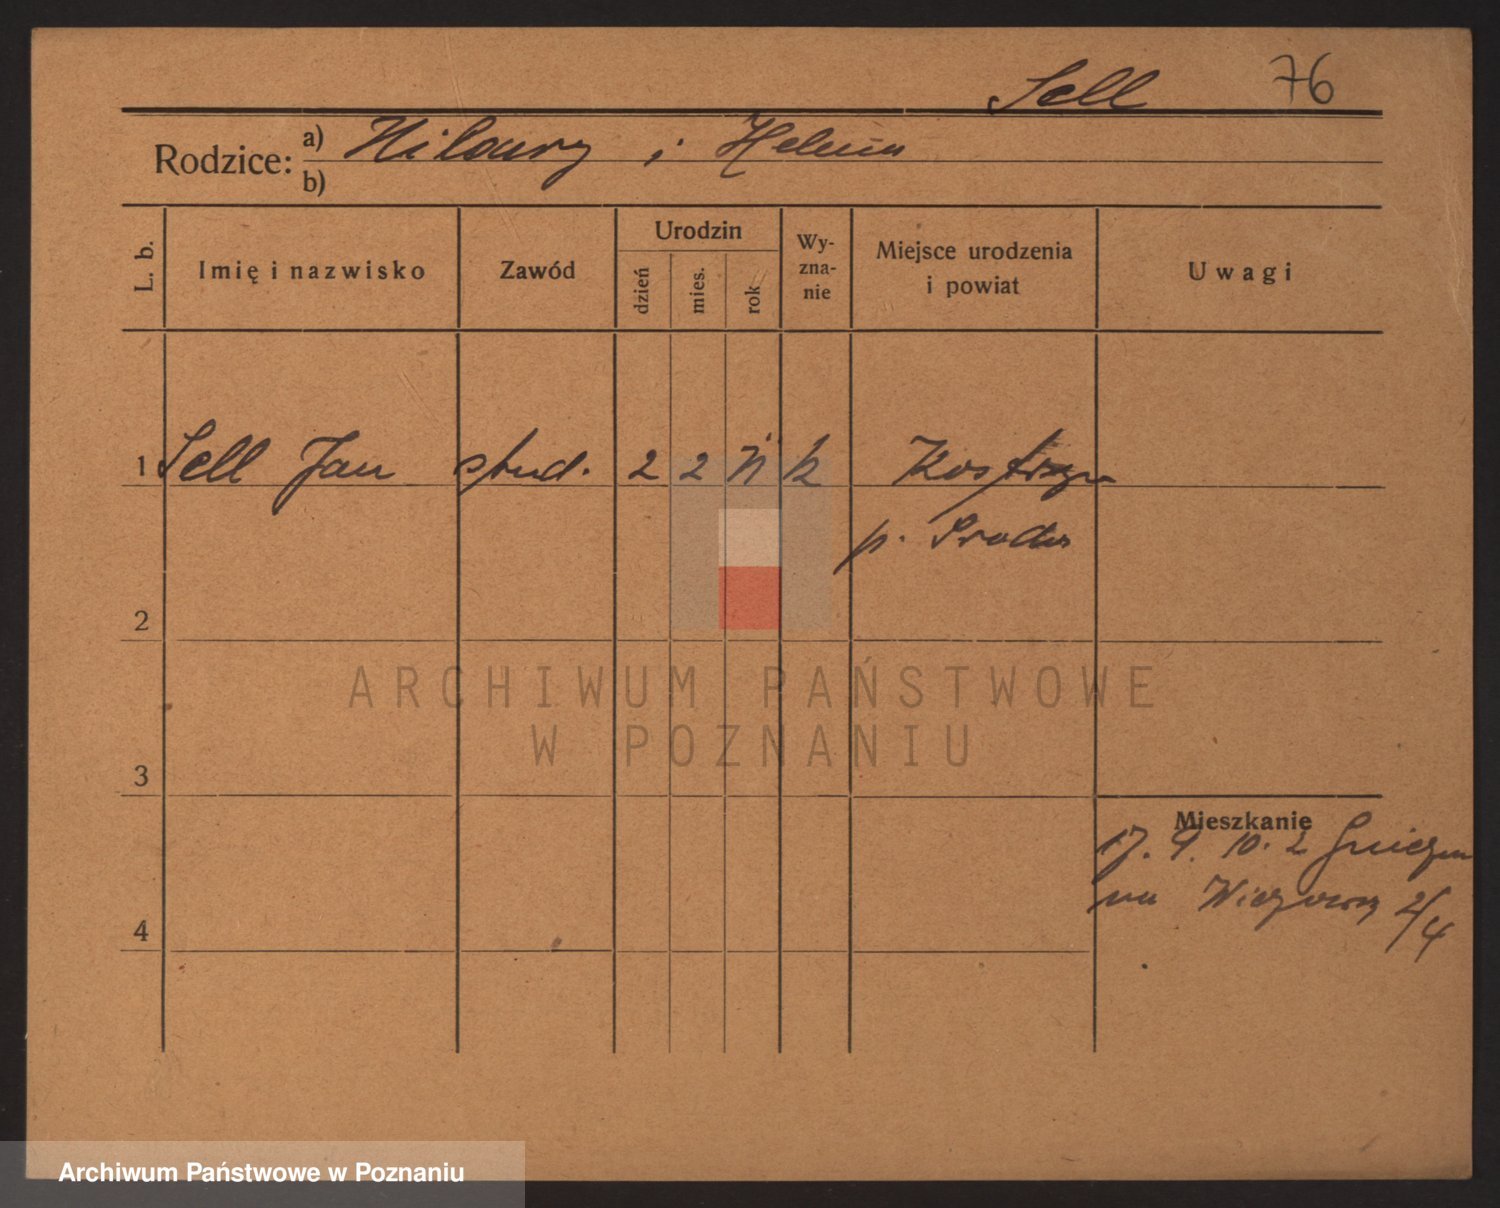 Sell 76
Rodzice: a) Hilary i Helena
b)
L. b. Imię i nazwisko Zawód Urodzin dzień mies. rok Wy-zna-nie Miejsce urodzenia i powiat Uwagi
1 Sell Jan stud. 2 2 k Kostrzyn
p. Środa
2
3
Mieszkanie
17. 9. 10. z Gniezna
4
ARCHIWUM PAŃSTWOWE
W POZNANIU
Archiwum Państwowe w Poznaniu